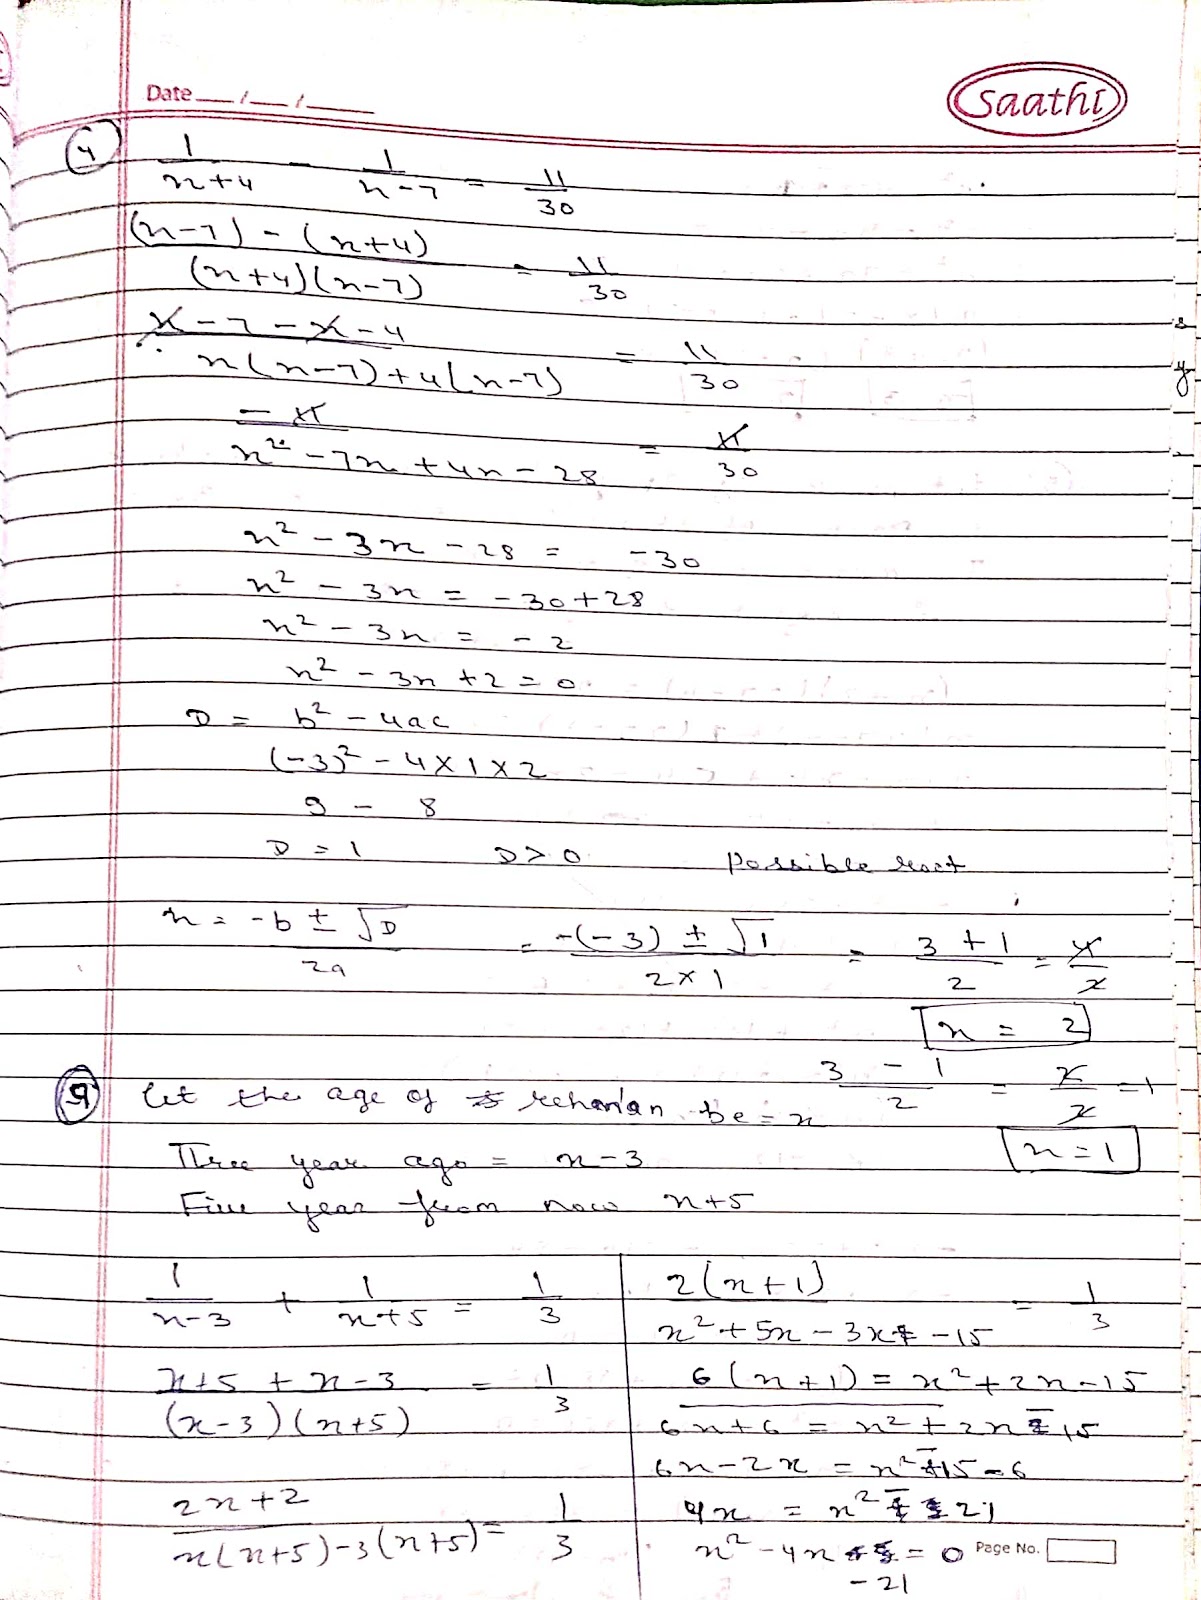 Date __/__/__
Saathi
4) 1/(x+4) - 1/(x-7) = 11/30
((x-7) - (x+4))/((x+4)(x-7)) = 11/30
(x-7-x-4)/(x(x-7)+4(x-7)) = 11/30
-11/(x²-7x+4x-28) = 11/30
x²-3x-28 = -30
x²-3x = -30+28
x²-3x = -2
x²-3x+2=0
D = b²-4ac
(-3)²-4×1×2
9 - 8
D = 1 D>0 Possible root
x = (-b ± √D)/2a = (-(-3) ± √1)/(2×1) = (3+1)/2 = 4/2
x = 2
(3-1)/2 = 2/2 = 1
x=1
5) let the age of rehman be = x
Three year ago = x-3
Five year from now x+5
1/(x-3) + 1/(x+5) = 1/3
(x+5+x-3)/((x-3)(x+5)) = 1/3
(2x+2)/(x(x+5)-3(x+5)) = 1/3
2(x+1)/(x²+5x-3x-15) = 1/3
6(x+1) = x²+2x-15
6x+6 = x²+2x-15
6x-2x = x²-15-6
4x = x²-21
x²-4x-21 = 0
Page No.